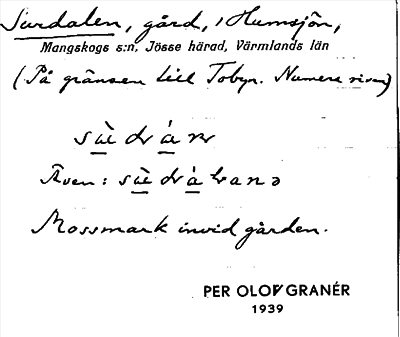 Surdalen, gård, i Humsjön,
Mangskogs s:n, Jösse härad, Värmlands län
(På gränsen till Tobyn. Numera riven)
Även:
Mossmark invid gården.
PER OLOF GRANÉR
1939